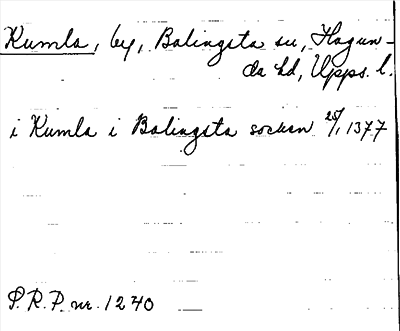 Kumla, by, Balingsta sn, Hagun-
da hd, Upps. l.
i Kumla i Balingsta socken 25/1 1377
P.R.P. nr. 1270